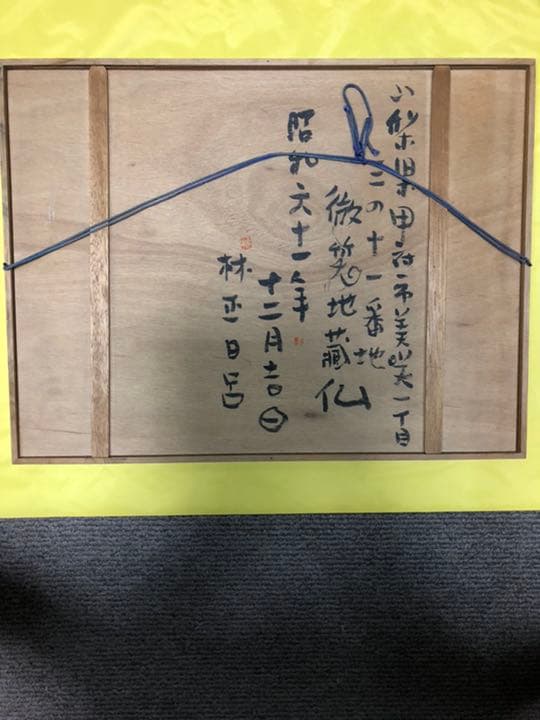 山梨県甲府市美咲一丁目
三の十一番地
微笑地藏仏
昭和六十一年
十二月吉日
林正日呂